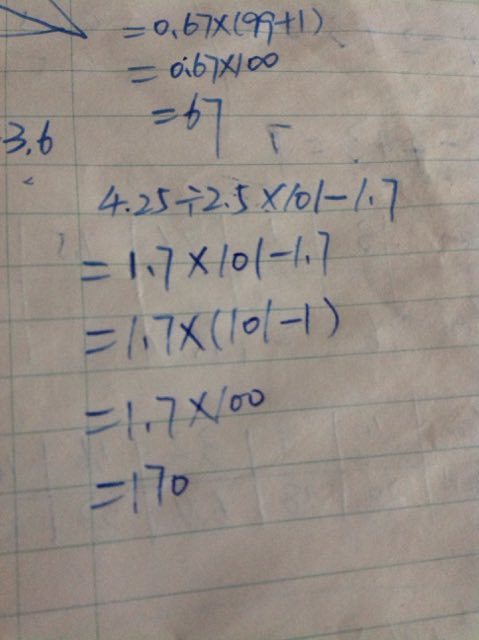 =0.67×(99+1)
=0.67×100
=67
3.6
4.25÷2.5×101-1.7
=1.7×101-1.7
=1.7×(101-1)
=1.7×100
=170